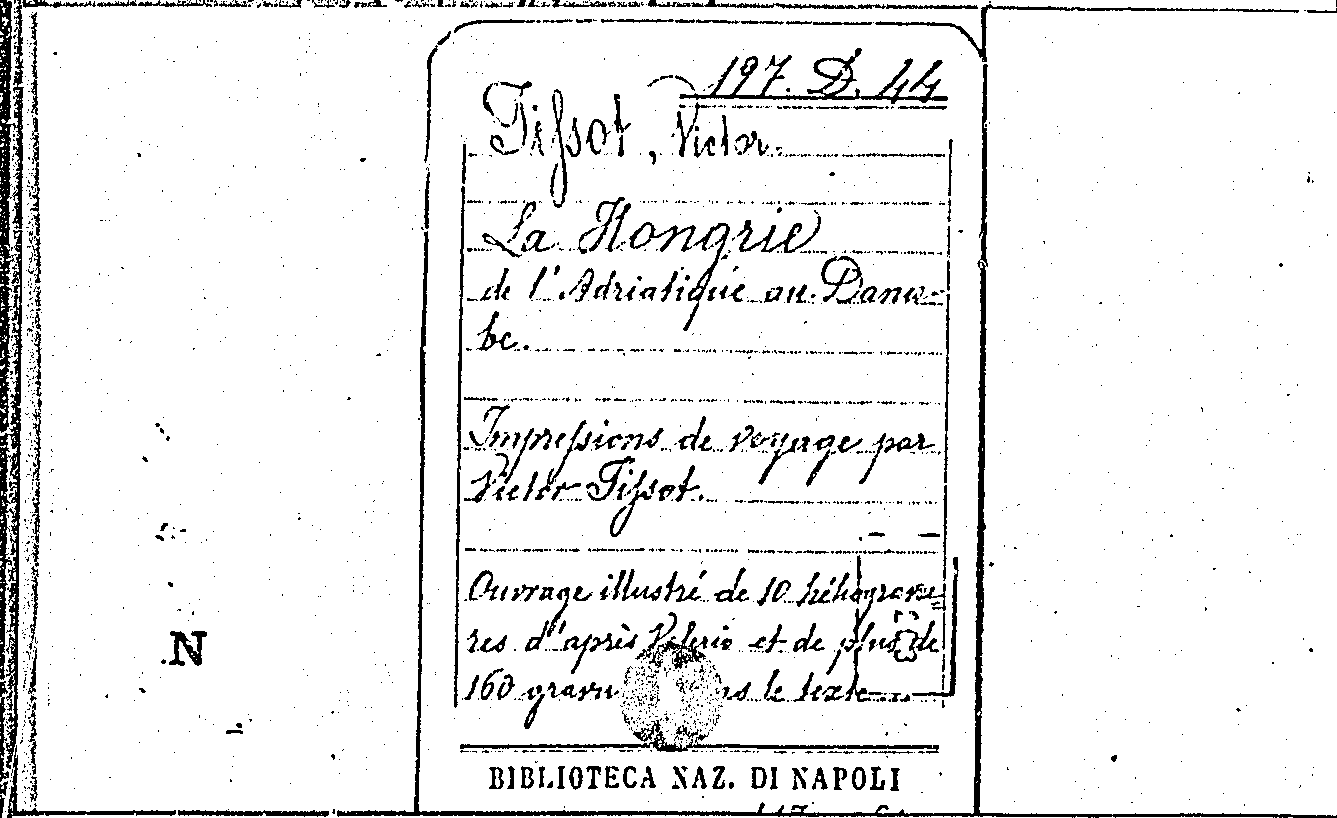 197. D. 44
Tissot, Victor.
La Hongrie
de l'Adriatique au Danu-
be.
Impressions de voyage par
Victor Tissot.
Ouvrage illustré de 10 héliogravu=
res d'après Valerio et de plus de
160 gravu le texte
N
BIBLIOTECA NAZ. DI NAPOLI